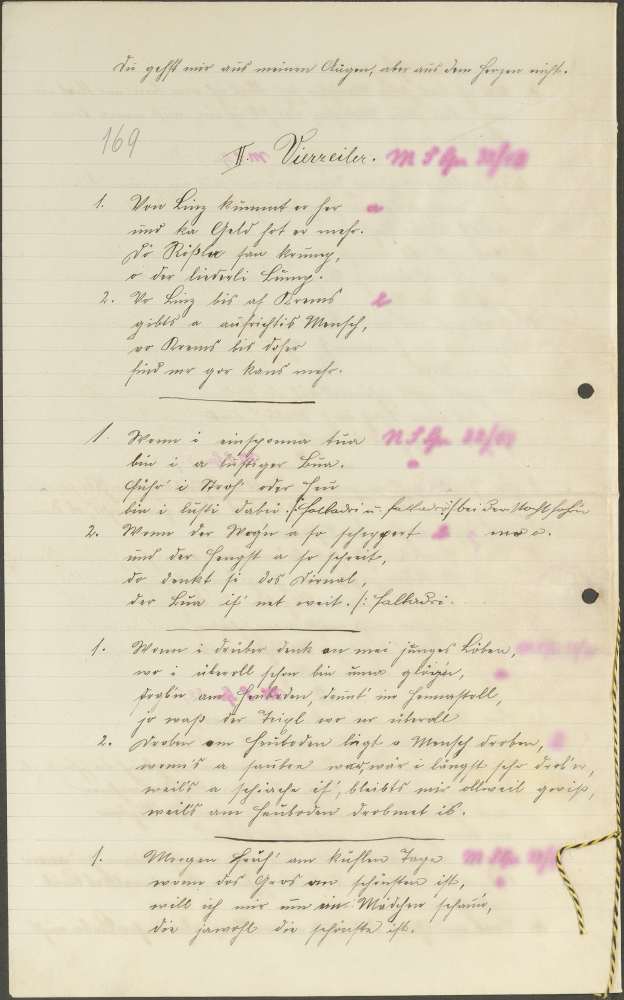 Du gehst mir aus meinen Augen, aber aus dem Herzen nicht.
169
II. Vierzeiler.
1. Von Linz kummt er her a
und ka Geld hot er mehr.
Dö Rößla san krump,
o der liederli Lump.
2. Vo Linz bis af Krems
gibts a aufrichtis Mensch,
vo Krems bis daher
find mr gor kans mehr.
1. Wenn i einspanna tua
bin i a lustiger Bua.
Führ i Stroh oder Heu
bin i lusti dabei.
2. Wenn der Wog'n a so scheppert
und der Hengst a so schreit,
do denkt si dos Dirnal,
der Bua is' net weit.
1. Wenn i drüber denk an mei junges Löben,
wo i überoll schon bin uma glög'n,
drob'n am Heuboden, drunt' im Hennastoll,
jo waß der Teixl wo no überoll
2. Droben am Heuboden liegt a Mensch droben,
wenns a saubre war, wär i längst scho drob'n,
weil's a schiache is', bleibts mir ollweil gewiß,
weils am Heuboden drobmet is.
1. Morgen früh' am kühlen Tage
wenn das Gras am schönsten ist,
will ich mir um ein Mädchen schaun,
die jawohl die schönste ist.